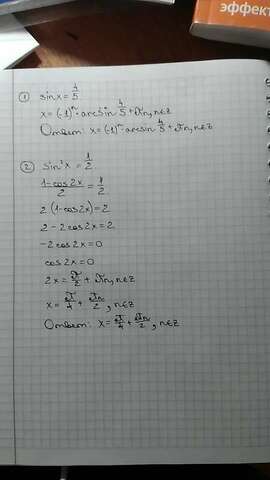 эффект
① sin x = 4/5
x = (-1)ⁿ · arcsin 4/5 + πn, n∈z
Ответ: x = (-1)ⁿ · arcsin 4/5 + πn, n∈z
② sin²x = 1/2
1-cos2x/2 = 1/2
2(1-cos2x) = 2
2 - 2cos2x = 2
-2cos2x = 0
cos2x = 0
2x = π/2 + πn, n∈z
x = π/4 + πn/2, n∈z
Ответ: x = π/4 + πn/2, n∈z